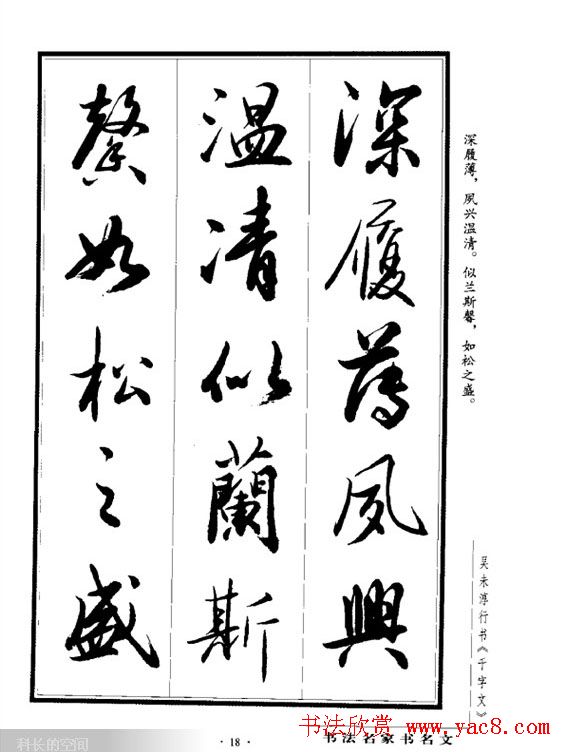 深履薄夙興
温凊似蘭斯
馨如松之盛
深履薄，夙兴温清。似兰斯馨，如松之盛。
吴未淳行书《千字文》
科长的空间
·18·
书法名家书名文
书法欣赏 www.yac8.com